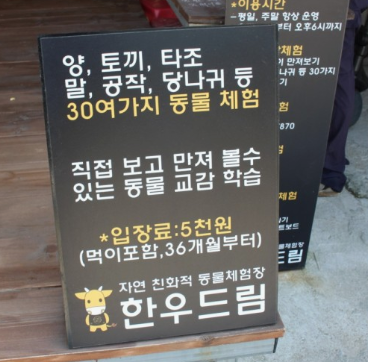 양, 토끼, 타조
말, 공작, 당나귀 등
30여가지 동물 체험
직접 보고 만져 볼수
있는 동물 교감 학습
*입장료:5천원
(먹이포함,36개월부터)
자연 친화적 동물체험장
한우드림
*이용시간
-평일, 주말 항상 운영
부터 오후6시까지
체험
만져보기
나귀 등 30가지
기
870
체험
기
트보드
물체험장
드림